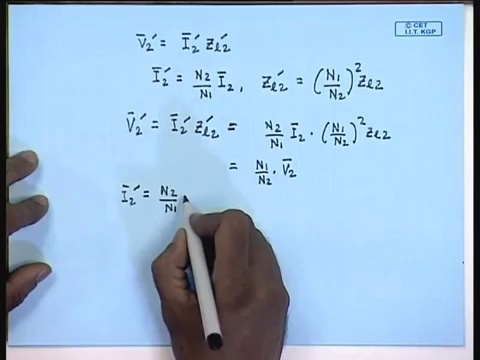 © CET
I.I.T. KGP
V̄₂′ = Ī₂′ Zl₂′
Ī₂′ = N₂/N₁ Ī₂, Zl₂′ = (N₁/N₂)² Zl₂
V̄₂′ = Ī₂′ Zl₂′ = N₂/N₁ Ī₂ · (N₁/N₂)² Zl₂
= N₁/N₂ · V̄₂
Ī₂′ = N₂/N₁